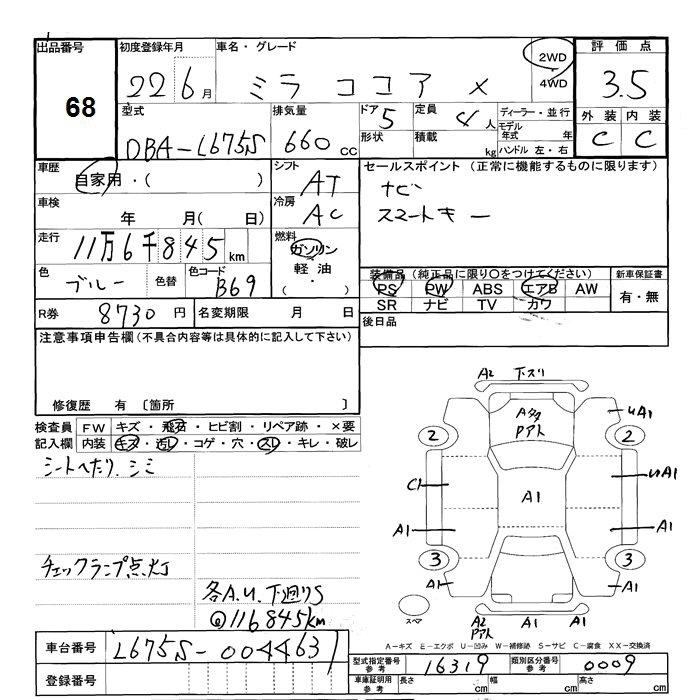 出品番号 初度登録年月 車名・グレード 2WD 4WD 評価点
68 22 6月 ミラ ココア X 3.5
型式 排気量 ドア 5 定員 4人 ディーラー・並行 外装 内装
DBA-L675S 660cc 形状 積載 kg モデル年式 年 C C
ハンドル 左・右
車歴 シフト セールスポイント (正常に機能するものに限ります)
自家用・( ) AT ナビ
車検 冷房 スマートキー
年 月( 日) AC
走行 燃料
11万6千845km ガソリン
軽油
・( )
色 色替 色コード 装備品 (純正品に限り○をつけてください) 新車保証書
ブルー B69 PS PW ABS エアB AW 有・無
SR ナビ TV カワ
R券 8730円 名変期限 月 日 後日品
注意事項申告欄(不具合内容等は具体的に記入して下さい)
修復歴 有 〔箇所 〕
検査員 FW キズ・飛石・ヒビ割・リペア跡・×要
記入欄 内装 キズ・汚レ・コゲ・穴・スレ・キレ・破レ
シートへたり、シミ
チェックランプ点灯
各A.U.下廻りS
@116845km
A2 下スリ
Aタタ
Pアト
UA1
2 2
C1 UA1
A1
A1 A1
3 3
A1 A1
スペア
A2 A1 A1
Pアト
A-キズ E-エクボ U-凹み W-補修跡 S-サビ C-腐食 XX-交換済
車台番号 L675S-0044631
登録番号
型式指定番号 参考 16319 類別区分番号 参考 0009
車庫証明用 参考 長さ cm 幅 cm 高さ cm